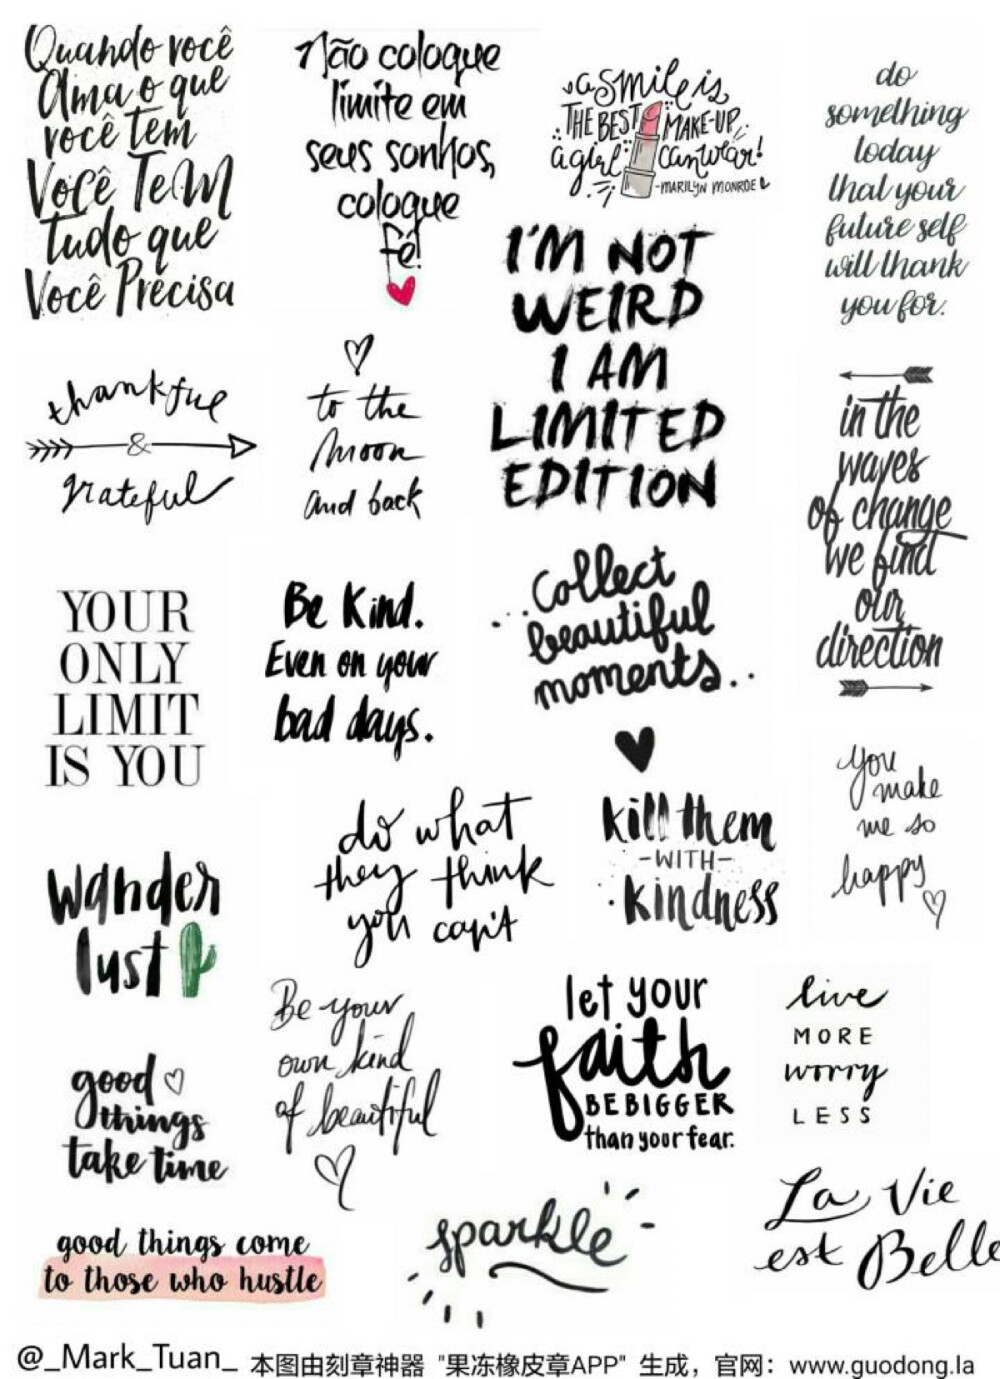 Quando você
Ama o que
você tem
Você Tem
Tudo que
Você Precisa
Não coloque
limite em
seus sonhos,
coloque
fé!
a smile is
THE BEST MAKE-UP
a girl can wear!
-MARILYN MONROE
do
something
today
that your
future self
will thank
you for.
I'M NOT
WEIRD
I AM
LIMITED
EDITION
thankful
&
grateful
to the
moon
and back
in the
waves
of change
we find
our
direction
YOUR
ONLY
LIMIT
IS YOU
Be Kind.
Even on your
bad days.
..Collect
beautiful
moments..
you
make
me so
happy
do what
they think
you can't
kill them
-WITH-
kindness
wander
lust
Be your
own kind
of beautiful
let your
faith
BE BIGGER
than your fear.
live
MORE
worry
LESS
good
things
take time
La Vie
est Belle
sparkle
good things come
to those who hustle
@_Mark_Tuan_ 本图由刻章神器 "果冻橡皮章APP" 生成，官网：www.guodong.la